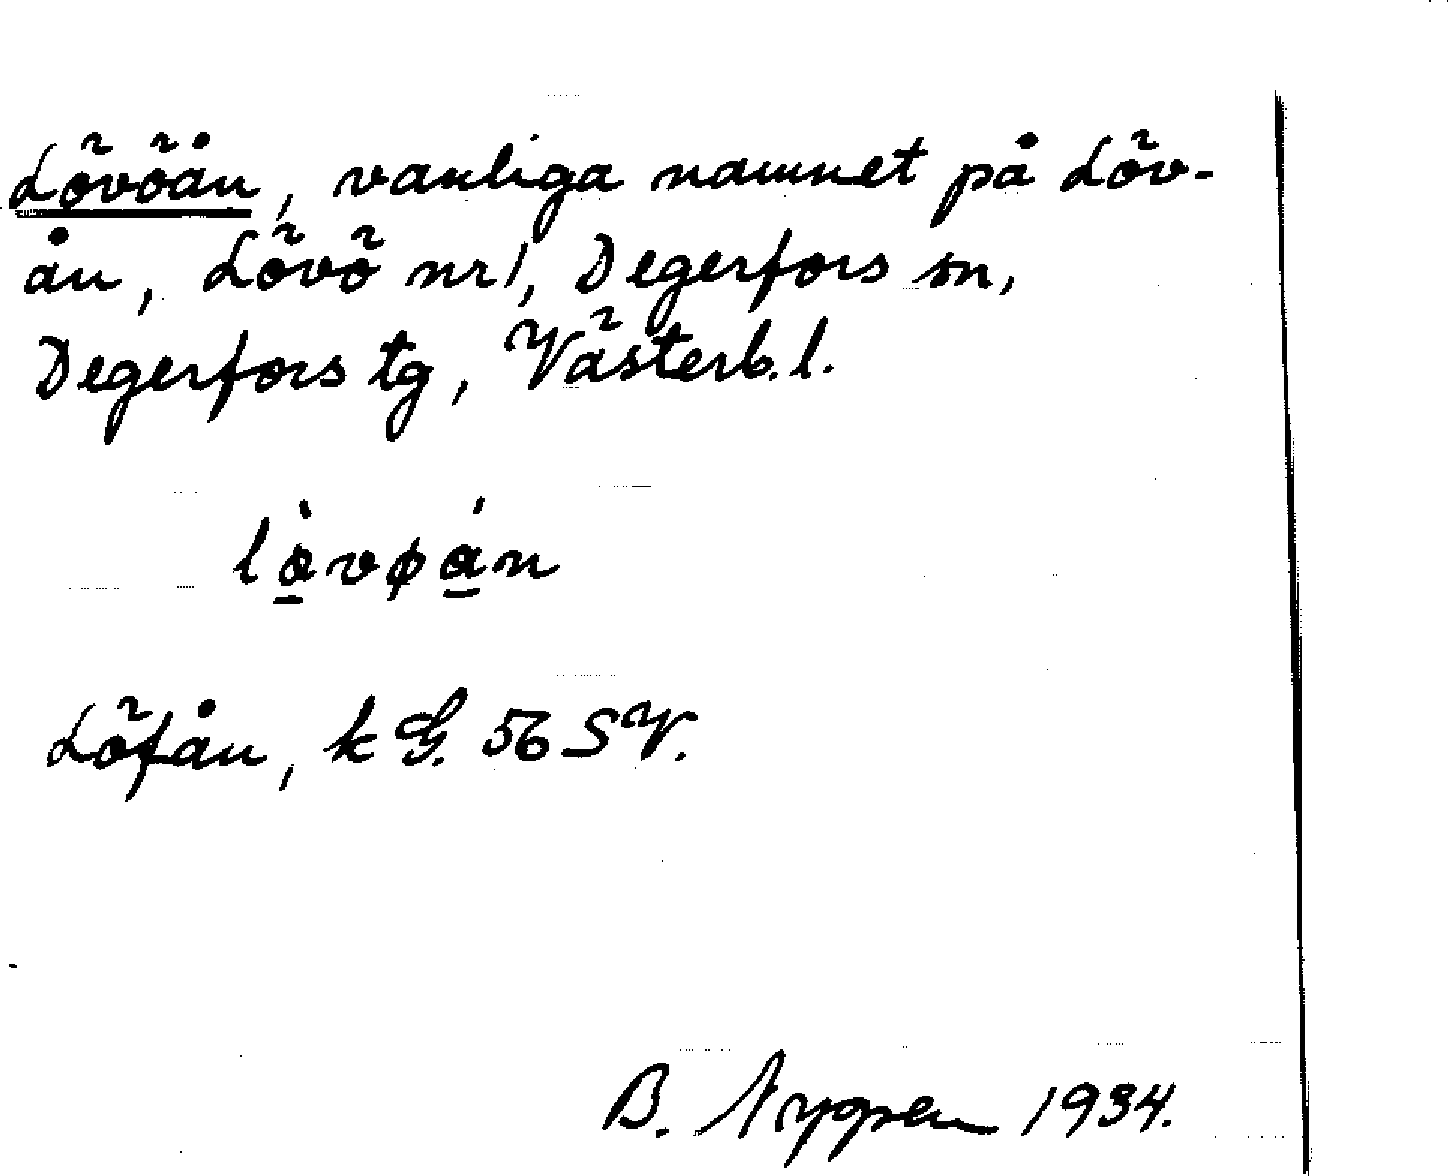 Lövöån, vanliga namnet på Löv-
ån, Lövö nr 1, Degerfors sn,
Degerfors tg, Västerb. l.
Löfån, k G. 56 SV.
B. 1934.